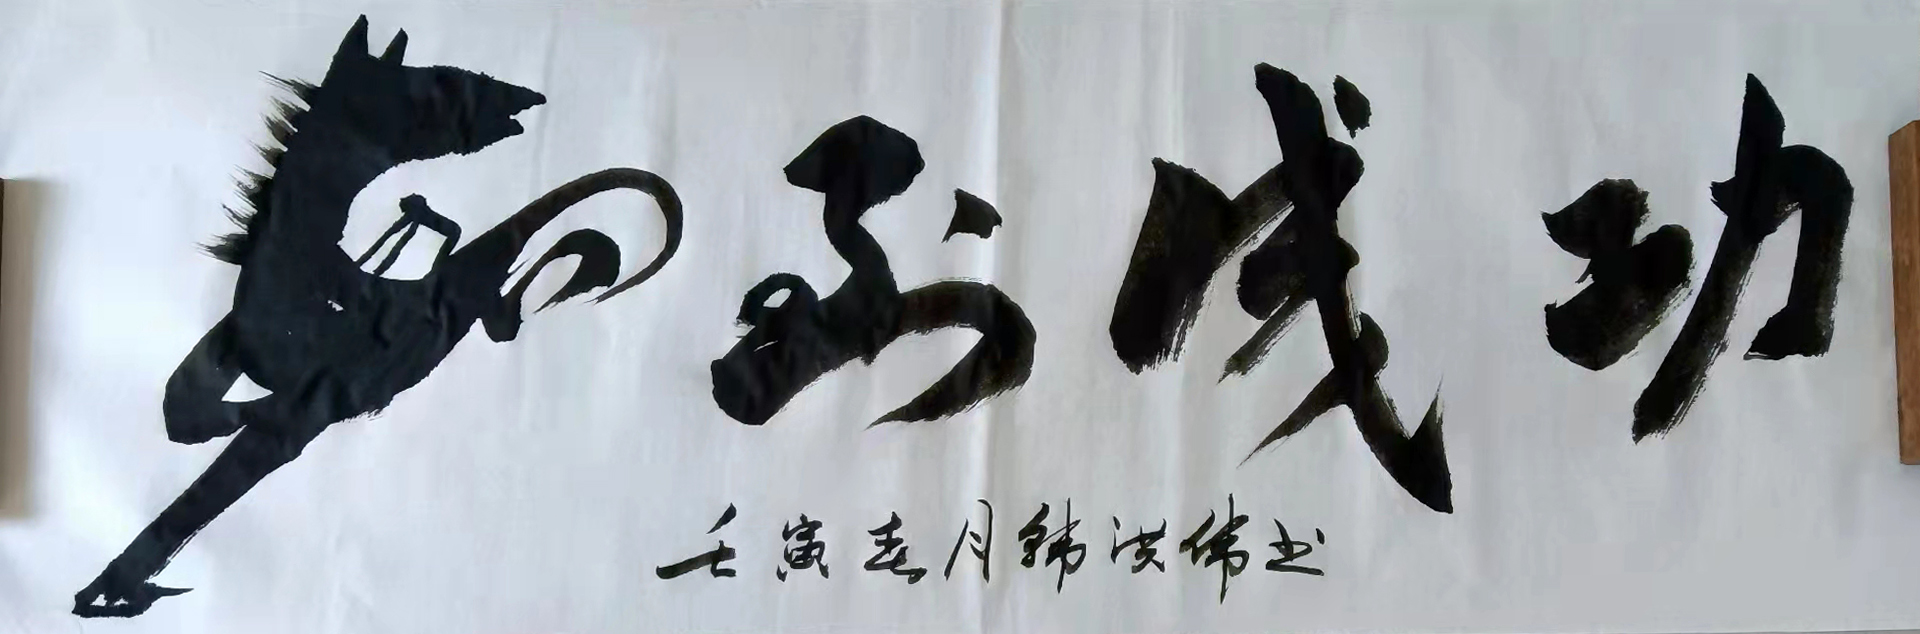 马到成功
壬寅春月韩洪伟书